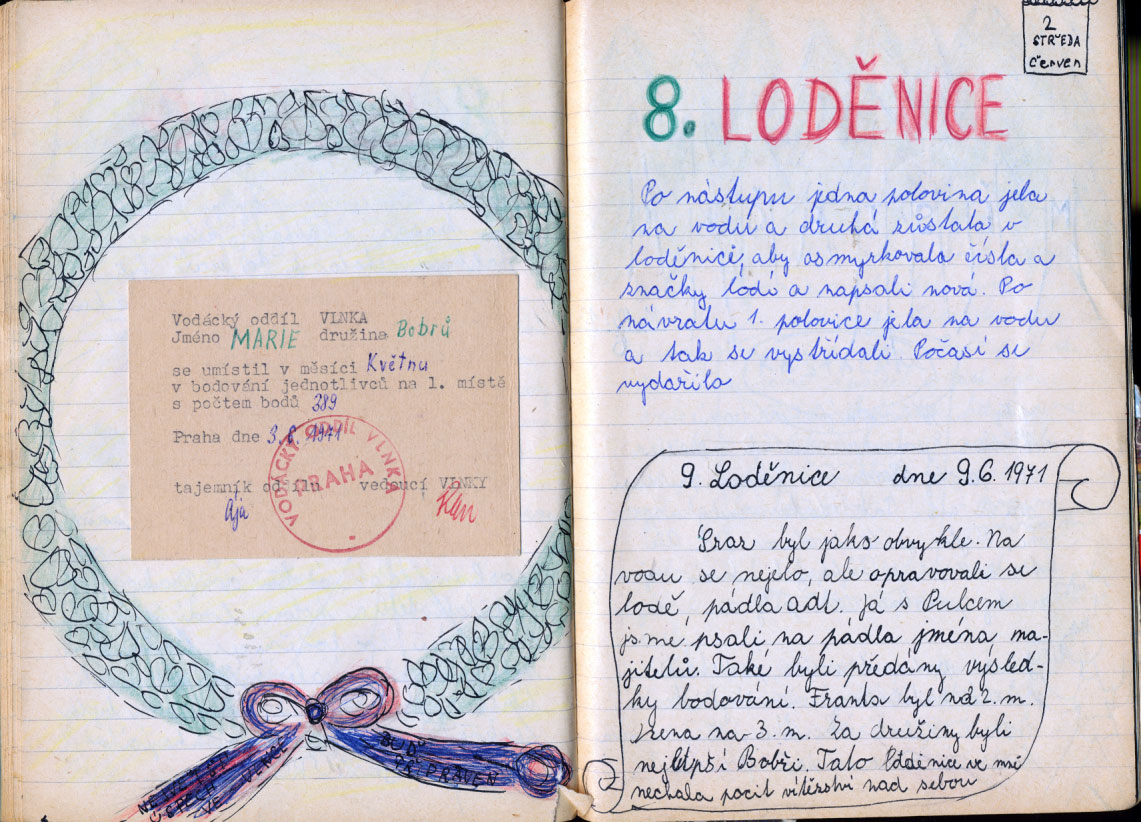 Vodácký oddíl VLNKA
Jméno MARIE družina Bobrů
se umístil v měsíci Květnu
v bodování jednotlivců na 1. místě
s počtem bodů 389
Praha dne 3.6. 1971
tajemník oddílu vedoucí VLNKY
Ája
VODÁCKÝ ODDÍL VLNKA
PRAHA
VĚNCE
BUĎ
PŘIPRAVEN
2
STŘEDA
červen
8. LODĚNICE
Po nástupu jedna polovina jela
na vodu a druhá zůstala v
loděnici, aby osmyrkovala čísla a
značky lódí a napsali nová. Po
návratu 1. polovice jela na vodu
a tak se vystřídali. Počasí se
vydařilo
9. Loděnice dne 9.6. 1971
Sraz byl jako obvykle. Na
vodu se nejelo, ale opravovali se
lodě, pádla adt. Já s Pulcem
jsme psali na pádla jména ma-
jitelů. Také byli předány výsled-
ky bodování. Franta byl na 2. m.
na 3. m. Za družiny byli
nejlepší Bobři. Tato loděnice ve mně
nechala pocit vítěrství nad sebou